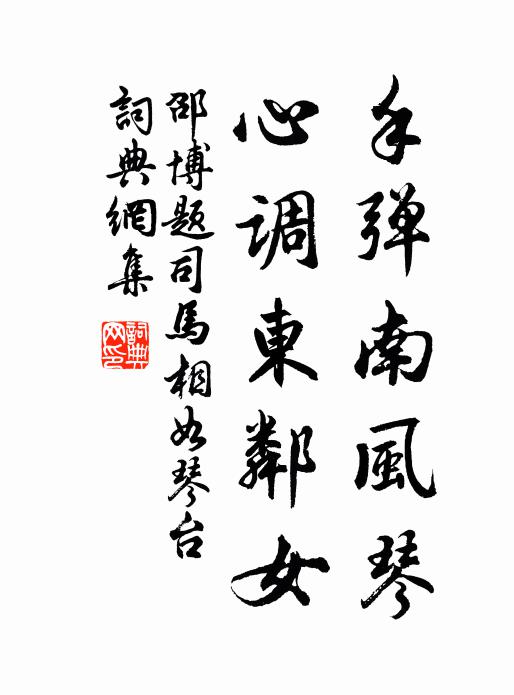 手弹南風琴
心调東鄰女
邵博题司馬相如琴台
詞典網集
詞典網印